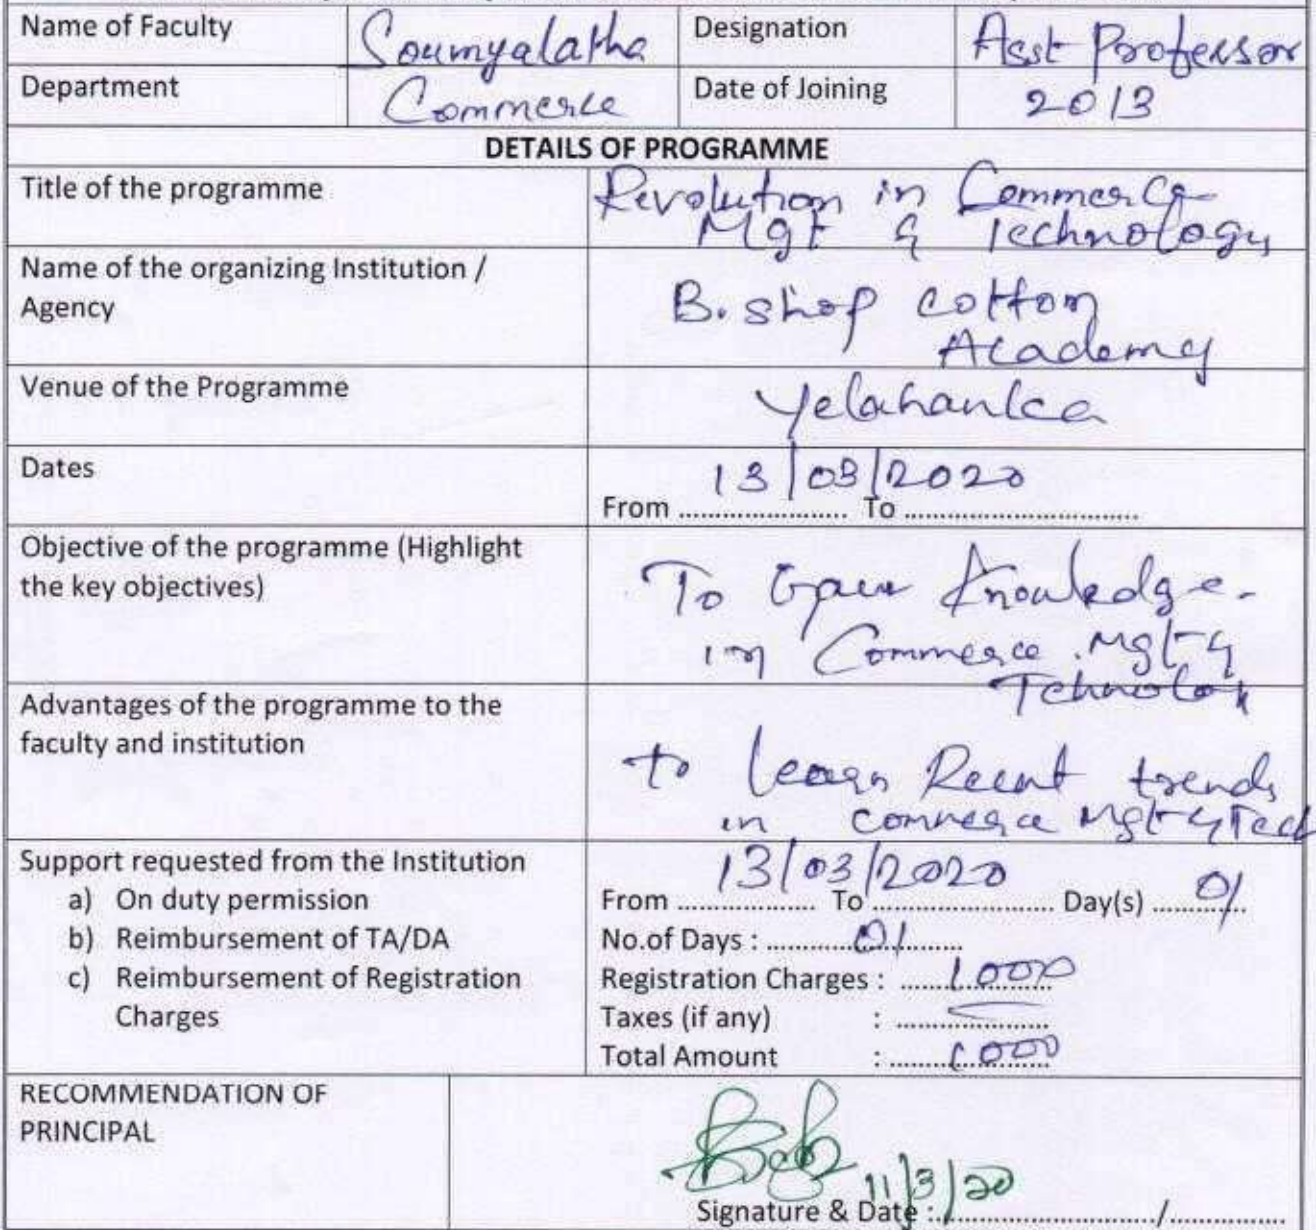 Name of Faculty Soumyalatha Designation Asst Professor
Department Commerce Date of Joining 2013
DETAILS OF PROGRAMME
Title of the programme Revolution in Commerce
Mgt & Technology
Name of the organizing Institution /
Agency
Bishop Cotton
Academy
Venue of the Programme Yelahanka
Dates 13/03/2020
From ........................ To .................................
Objective of the programme (Highlight
the key objectives)
To Gain Knowledge
in Commerce Mgt &
Advantages of the programme to the
faculty and institution
to learn Recent trends
in commerce Mgt & Tech
Support requested from the Institution 13/03/2020
a) On duty permission From .................... To .......................... Day(s) 01
b) Reimbursement of TA/DA No.of Days : 01
c) Reimbursement of Registration Registration Charges : 1000
Charges Taxes (if any) : ......................
Total Amount : 1000
RECOMMENDATION OF
PRINCIPAL
11/3/20
Signature & Date :................................/.................